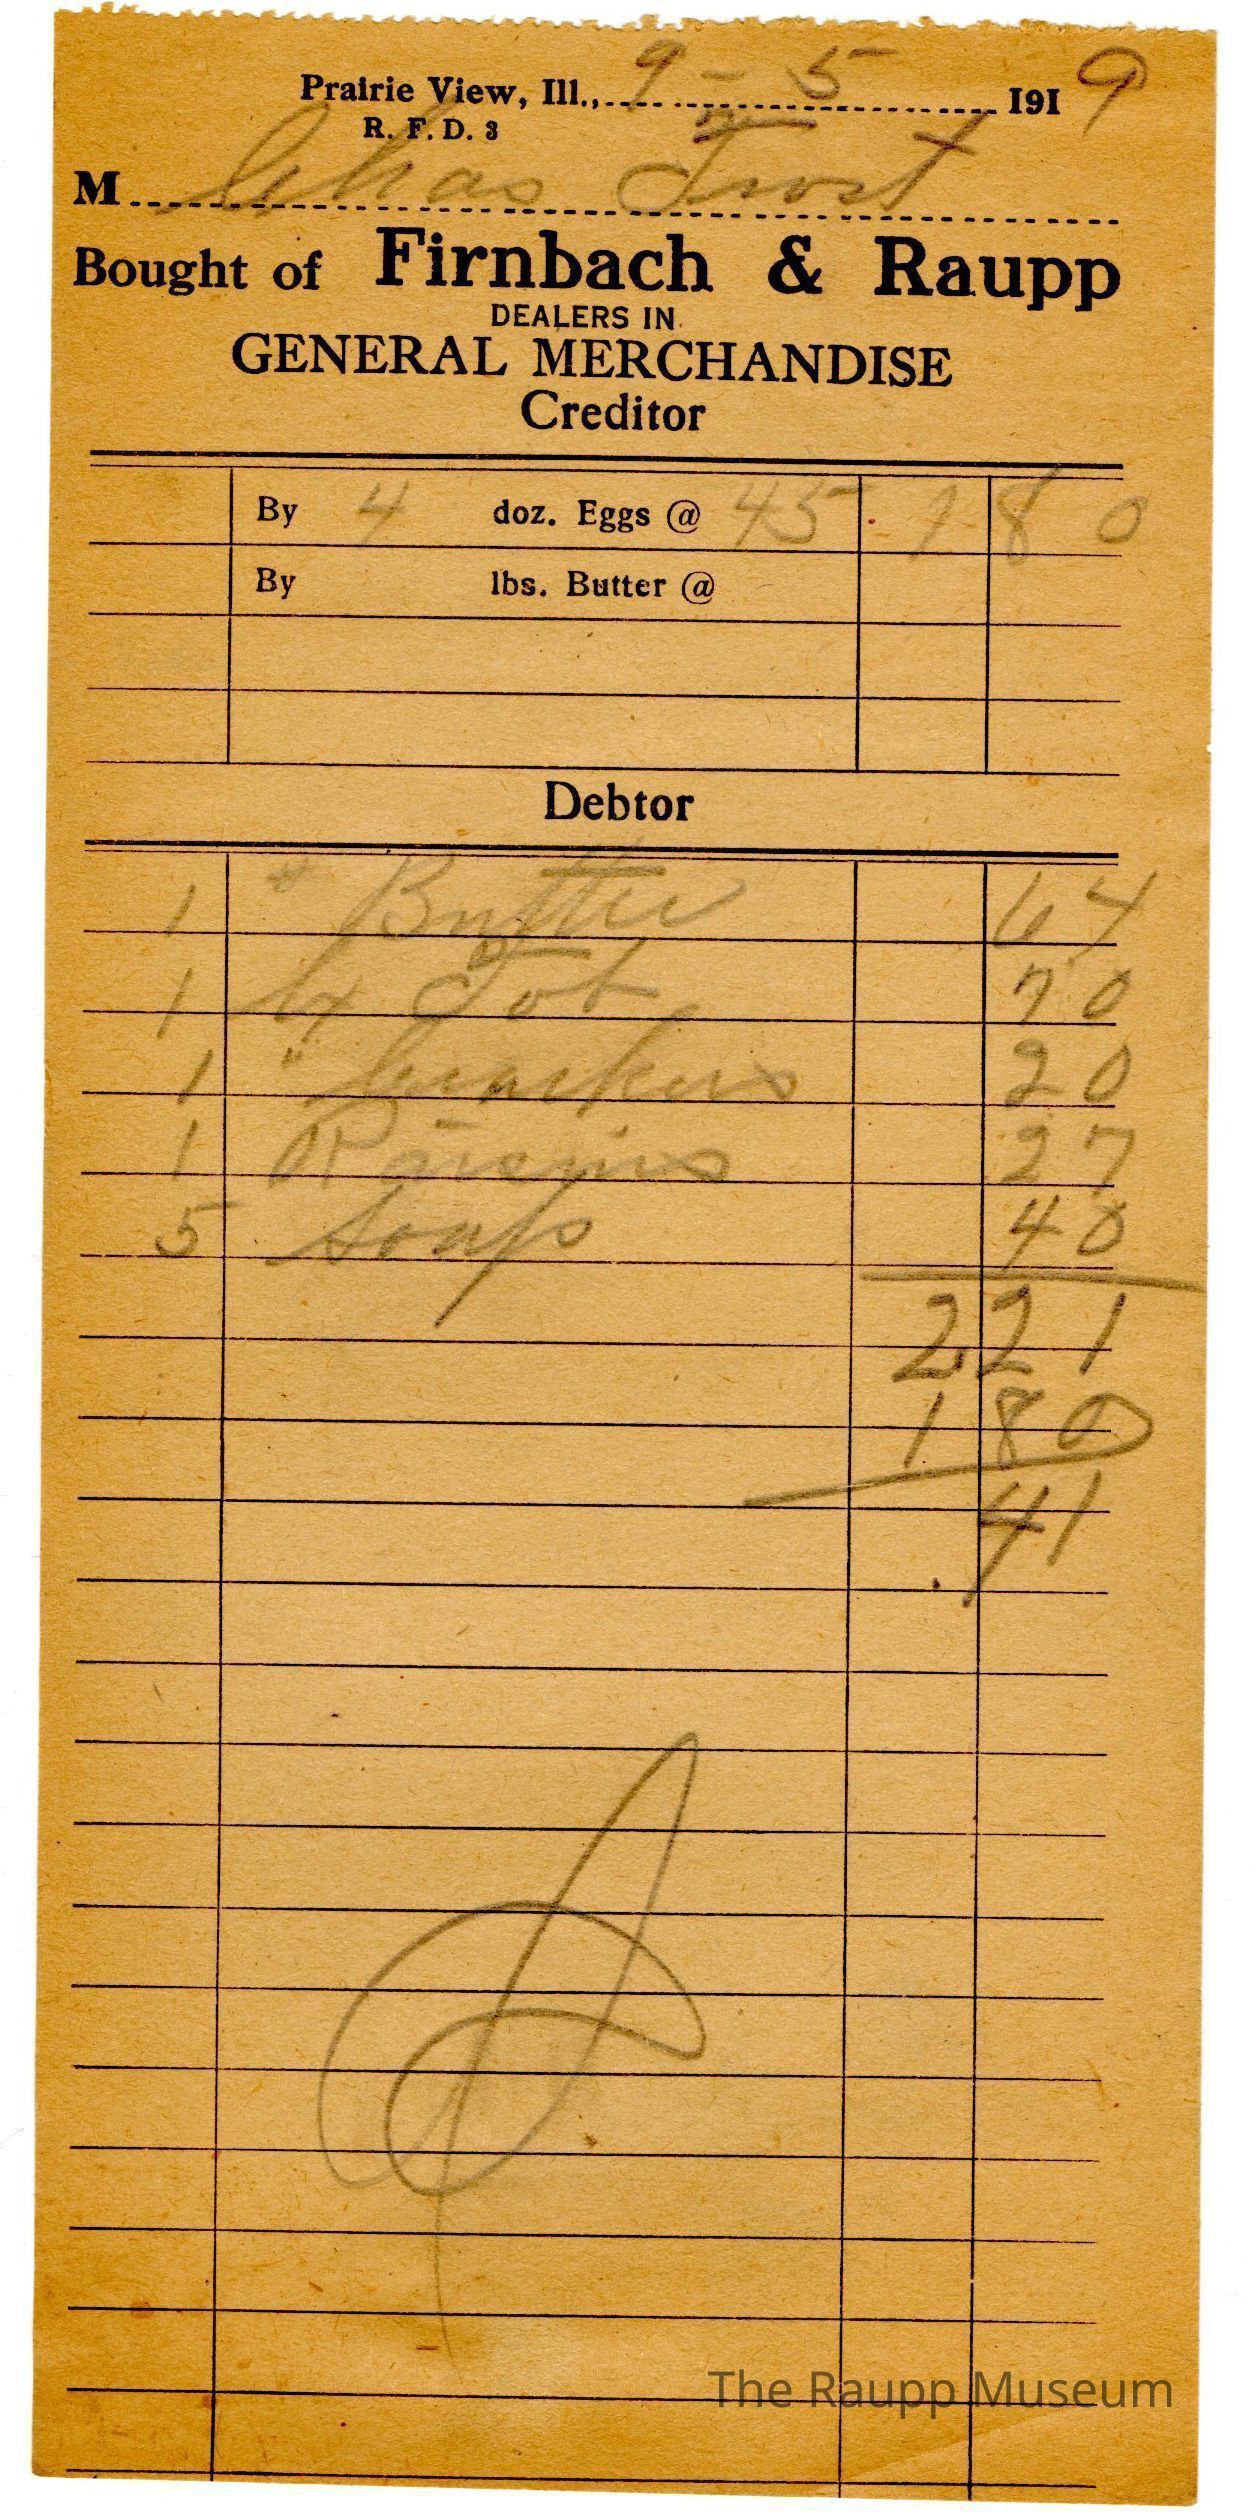 Prairie View, Ill., 9 - 5 1919
R. F. D. 3
M Chas Trost
Bought of Firnbach & Raupp
DEALERS IN
GENERAL MERCHANDISE
Creditor
By 4 doz. Eggs @ 45 1 80
By lbs. Butter @
Debtor
1 " Butter 64
1 bx Tob 70
1 " Crackers 20
1 Raisins 27
5 Soap 40
2.21
1 80
41
The Raupp Museum